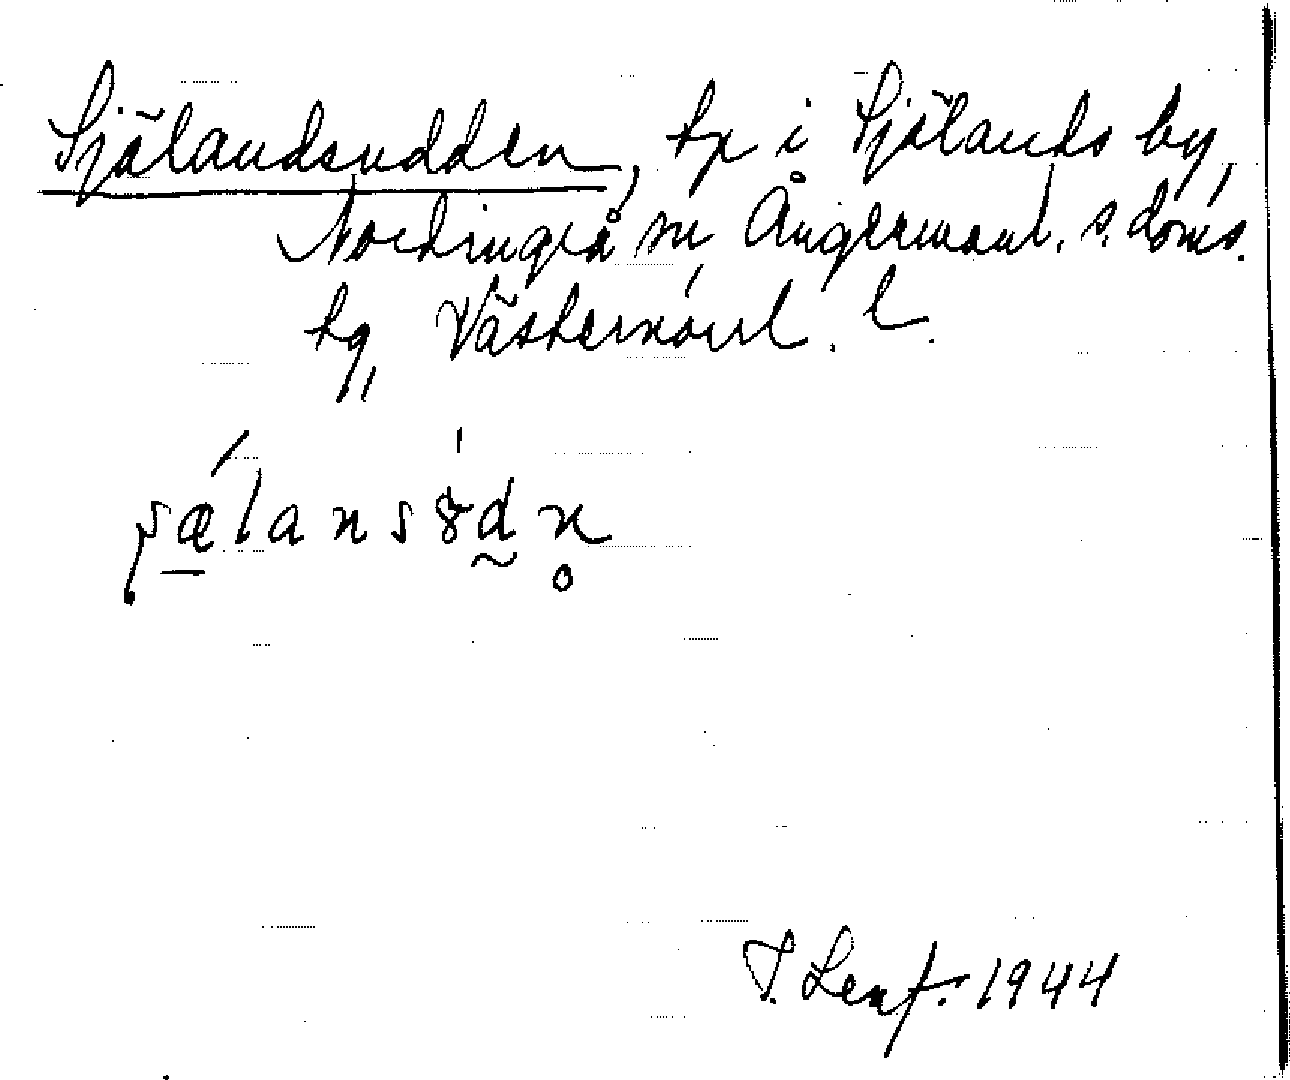 Själandsudden, tp i Själands by,
Nordingrå sn Ångermanl. s. doms.
tg, Västernorrl. l.
T. Lenf. 1944